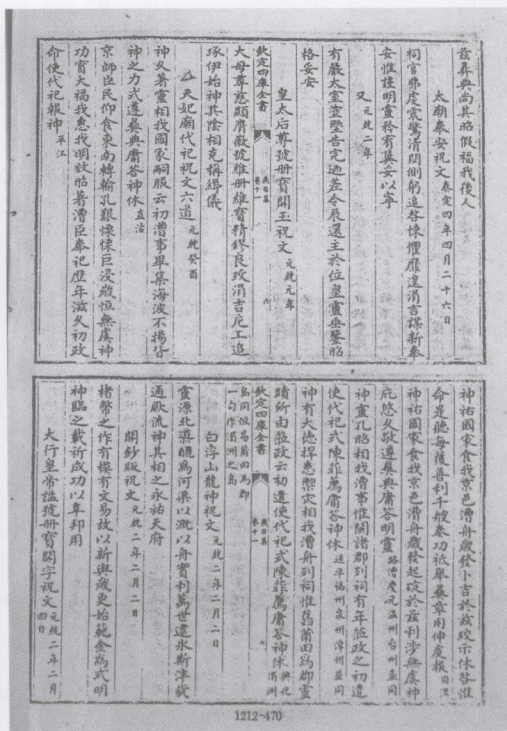 茲彝典尚其昭假福我後人
太廟奉安祝文 泰定四年四月二十六日
祠官弗虔震驚清閟側躬追咎悚懼靡遑涓吉謀新奉
安惟謹明靈於有其妥以寧
又 元統二年
有嚴太室靈塈告完迺差令辰還主於位皇靈垂鑒昭
格妥安
皇太后尊號冊寶開玉祝文 元統元年
欽定四庫全書 燕石集 卷十一 六
大母尊慈顯膺徽號維冊維寶精鏐良玫涓吉庀工追
琢伊始神其陰相克稱緝儀
天妃廟代祀祝文六道 元統癸酉
神久著靈相我國家嗣服云初漕事畢集海波不揚皆
神之力式遵彝典庸答神休 直沽
京師臣民仰食東南轉輸孔艱慄慄巨浸厥恒無虞神
功實大福我惠我明效昭著漕臣奉祀歷年滋久初政
命使代祀報神 平江
神祐國家食我京邑漕舟歲發卜吉於茲珓示休咎惟
命是聽每獲善利千艘奏功祗舉彝章用伸虔報 周江
神祐國家食我京邑漕舟歲發起碇於茲利涉無虞神
庇悠久敬遵彝典庸答明靈 路漕慶元溫州台州並同
神靈孔昭相我漕事惟閩諸郡列祠有年蒞政之初遣
使代祀式陳菲薦庸答神休 延平福州泉州漳州並同
神有大德捍患禦定相我漕舟列祠惟舊莆田為郡靈
蹟所由蒞政云初遣使代祀式陳菲薦庸答神休 興化湄洲
欽定四庫全書 燕石集 卷十一 七
島同但易莆田為郡一句作湄洲之島
白浮山龍神祝文 元統二年二月二日
靈源北導釃為河渠以溉以舟實利萬世還氷斯津載
通厥流神其相之永祐天府
開鈔版祝文 元統二年二月二日
楮幣之作有模有文易故以新與歲更始範金為式明
神臨之載祈成功以阜邦用
大行皇帝諡號冊寶開字祝文 元統二年二月四日
1212-470